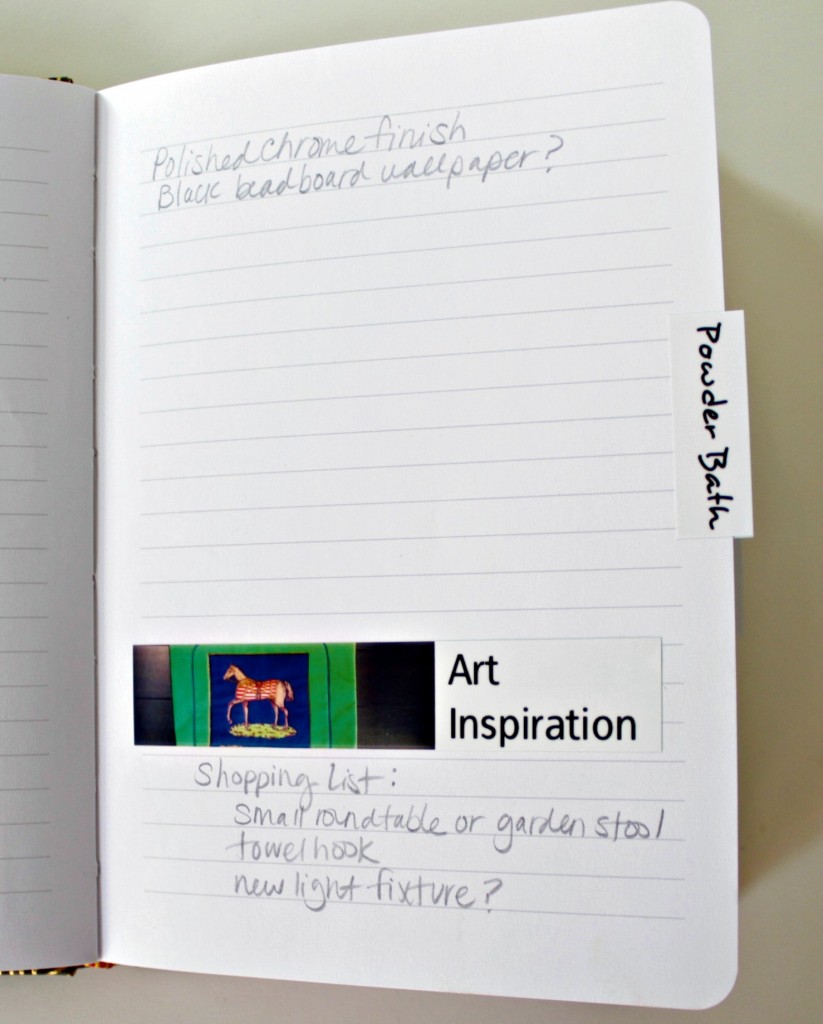 Polished chrome finish
Black beadboard wallpaper?
Powder Bath
Art
Inspiration
Shopping List:
small round table or garden stool
towel hook
new light fixture?